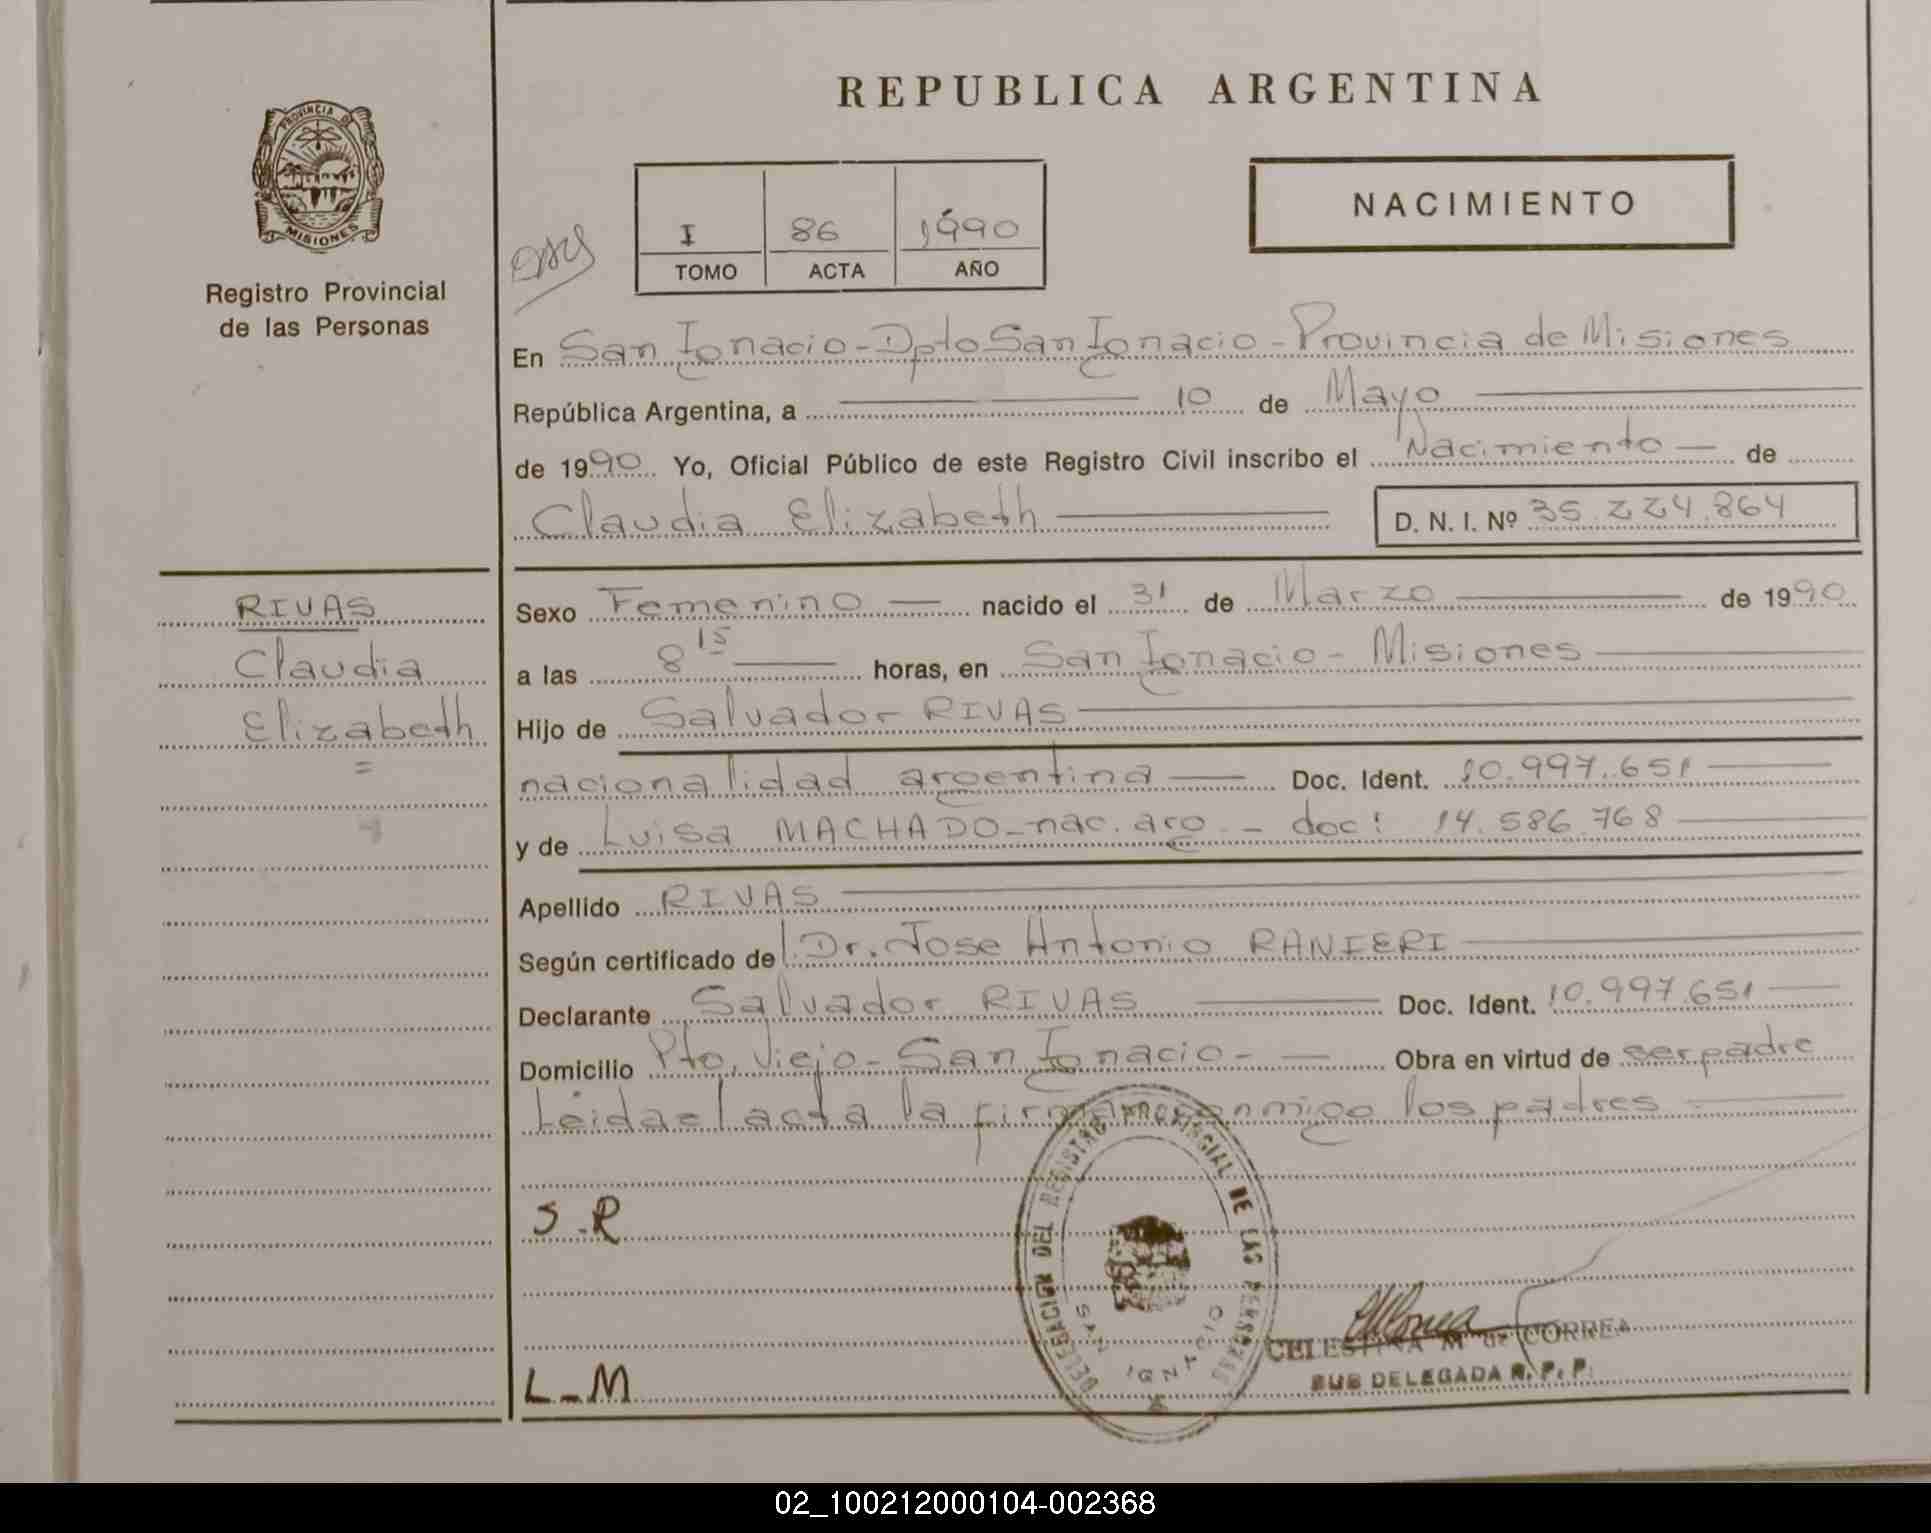 REPUBLICA ARGENTINA
PROVINCIA D
MISIONES
Registro Provincial
de las Personas
NACIMIENTO
I 86 1990
TOMO ACTA AÑO
En San Ignacio - Dpto San Ignacio - Provincia de Misiones
República Argentina, a 10 de Mayo
de 1990. Yo, Oficial Público de este Registro Civil inscribo el Nacimiento - de
Claudia Elizabeth
D. N. I. Nº 35.224.864
RIVAS
Claudia
Elizabeth
=
Sexo Femenino nacido el 31 de Marzo de 1990
a las 8 15 horas, en San Ignacio - Misiones
Hijo de Salvador RIVAS
nacionalidad argentina Doc. Ident. 10.997.651
y de Luisa MACHADO - nac. arg. - doc: 14.586.768
Apellido RIVAS
Según certificado de Dr. Jose Antonio RANIERI
Declarante Salvador RIVAS Doc. Ident. 10.997.651
Domicilio Pto. Viejo - San Ignacio - Obra en virtud de ser padre
Leida el acta la firman conmigo los padres
S.R
DELEGACION DEL REGISTRO PROVINCIAL DE LAS PERSONAS
SAN IGNACIO
CELESTINA M de CORREA
SUB DELEGADA R. P. P.
L-M
02_100212000104-002368